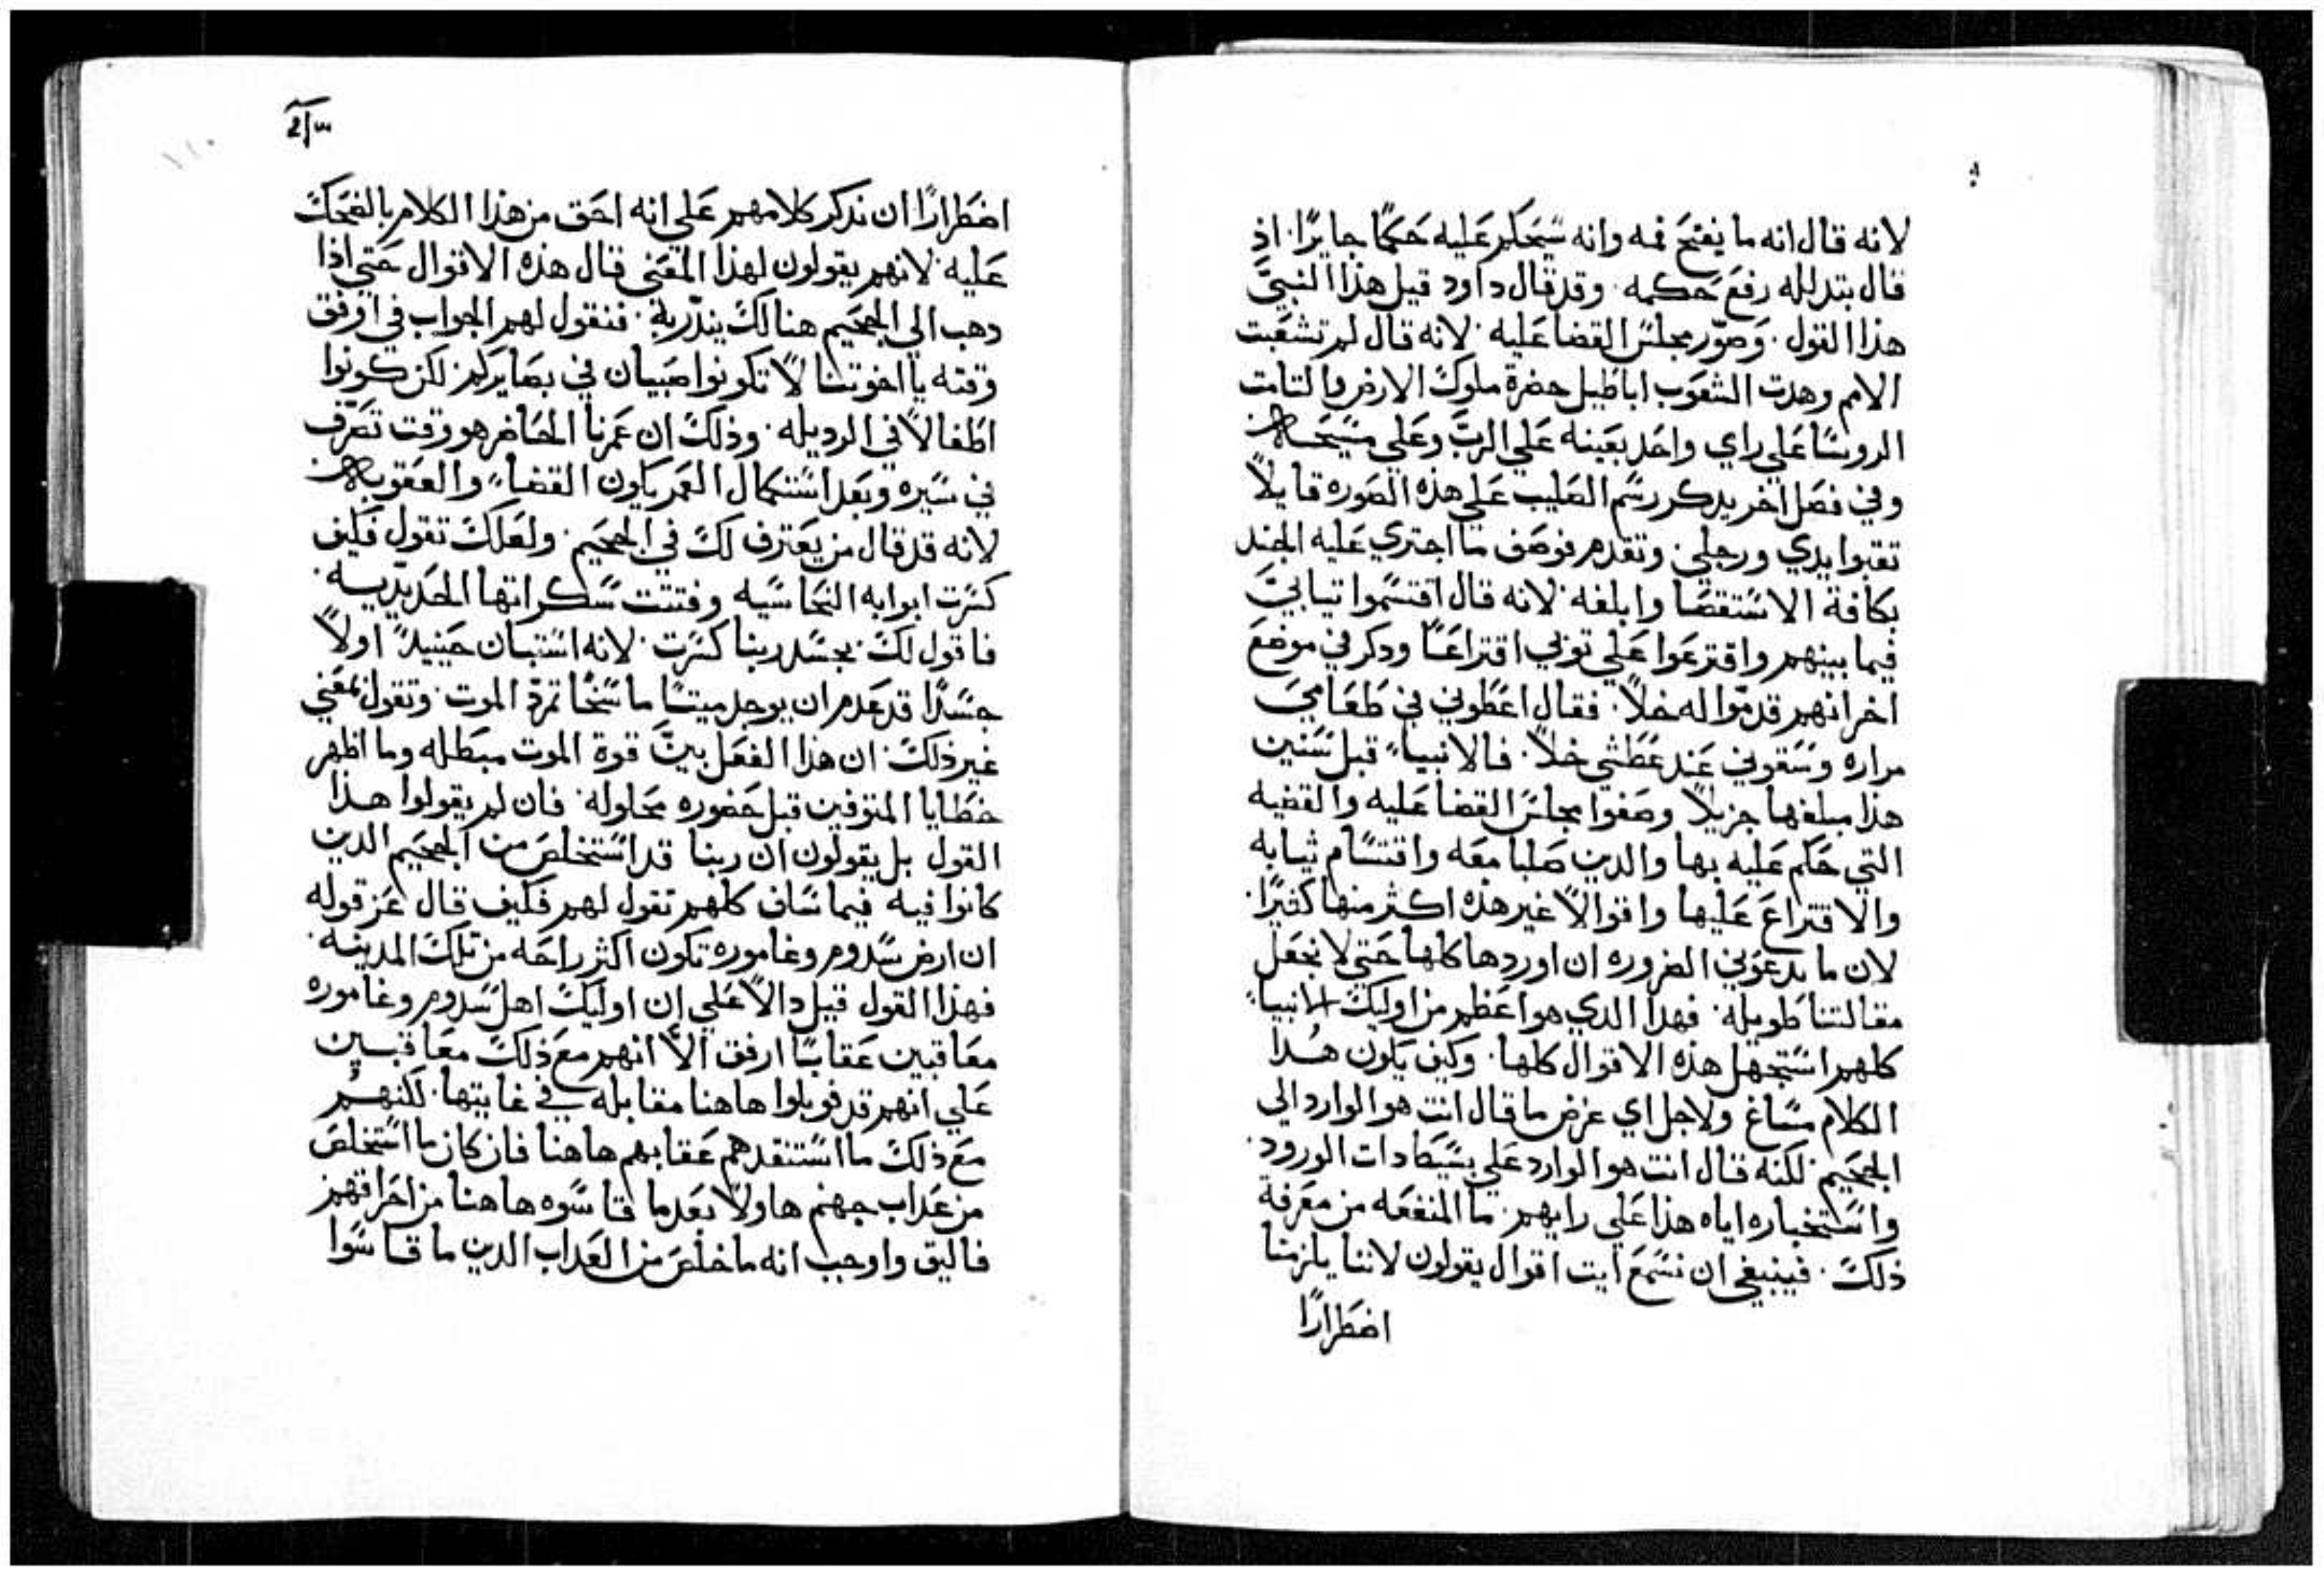 لانه قال انه ما يفتح فمه وانه سيحكم عليه حكمًا جايرًا. اذ
قال بتدلله رفع حكمه. وقد قال داود قبل هذا النبيّ
هذا القول. وصوّر مجلس القضا عليه. لانه قال لم تشغبت
الامم وهدت الشعوب اباطيل حضرة ملوك الارض والتامت
الروسا علي راي واحد بعينه علي الربّ وعلي مسيحه
وفي فصل اخر يدكر رسم الصليب علي هذه الصوره قايلاً
تقبوا يدي ورجلي. وتقدم فوصف ما اجتري عليه الجند
بكافة الاستقصا وابلغه. لانه قال اقتسموا تيابيَ
فيما بينهم واقترعوا علي توبي اقتراعًا ودكر في موضع
اخر انهم قدموّا له خلاً. فقال اعطوني في طعاميَ
مراره وسقوني عند عطشي خلاً. فالانبياء قبل سنين
هذا مبلغها جزيلاً وصفوا مجلس القضا عليه والقضيه
التي حكم عليه بها والدين صلبا معه واقتسام ثيابه
والاقتراع عليها واقوالاً غير هذه اكثر منها كثيرًا.
لان ما يدعوني الضروره ان اوردها كلها حتي لا نجعل
مقالتنا طويله. فهدا الدي هو اعظم من اوليك الانبياء
كلهم استجهل هذه الاقوال كلها. وكيف يكون هدا
الكلام مساغ ولاجل اي غرض ما قال انت هو الوارد الي
الجحيم. لكنه قال انت هو الوارد علي بسيطادات الورود.
واستخباره اياه هذا علي رايهم. ما المنفعه من معرفة
ذلك. فينبغي ان نسمع ايت اقوال يقولون لاننا يلزمنا
اضطرارًا
اضطرارًا ان ندكر كلامهم علي انه احق من هذا الكلام بالضحك
عليه. لانهم يقولون لهذا المعني قال هذه الاقوال حتي اذا
دهب الي الجحيم هنالك ينذّر به. فنقول لهم الجواب في اوفق
وقته يا اخوتنا لا تكونوا صبيان في بصايركم. لكن كونوا
اطفالاً في الرديله. وذلك ان عمرنا الحاضر هو وقت تصرّف
في سيره وبعد استكمال العمر يكون القضاء والعقوبه
لانه قد قال من يعترف لك في الجحيم. ولعلك تقول فكيف
كسرت ابوابه النحاسيه وفتتت سكراتها الحديديه.
فاقول لك. بجسد ربنا كسرت. لانه استبان حينيدً اولاً
جسدًا قد عدم ان يوجد ميتًا ماسخًا تمرّد الموت. وتقول بمعني
غير ذلك. ان هذا الفعل بينّ قوة الموت مبطله وما اظهر
خطايا المتوفين قبل حضوره محلوله. فان لم يقولوا هذا
القول بل يقولون ان ربنا قد استخلص من الجحيم الدين
كانوا فيه فيما سلف كلهم نقول لهم فكيف قال عن قوله
ان ارض سدوم وغاموره تكون اكثر راحه من تلك المدينه.
فهذا القول قيل دالاً علي ان اوليك اهل سدوم وغاموره
معاقبين عقابًا ارفق الاّ انهم مع ذلك معاقبين
علي انهم قد قوبلوا هاهنا مقابله في غايتها. لكنهم
مع ذلك ما استنقدهم عقابهم هاهنا فان كان ما استخلص
من عداب جهنم هاولا بعدما قاسوه هاهنا من احراقهم
فاليق واوجب انه ما خلص من العداب الدين ما قاسوا